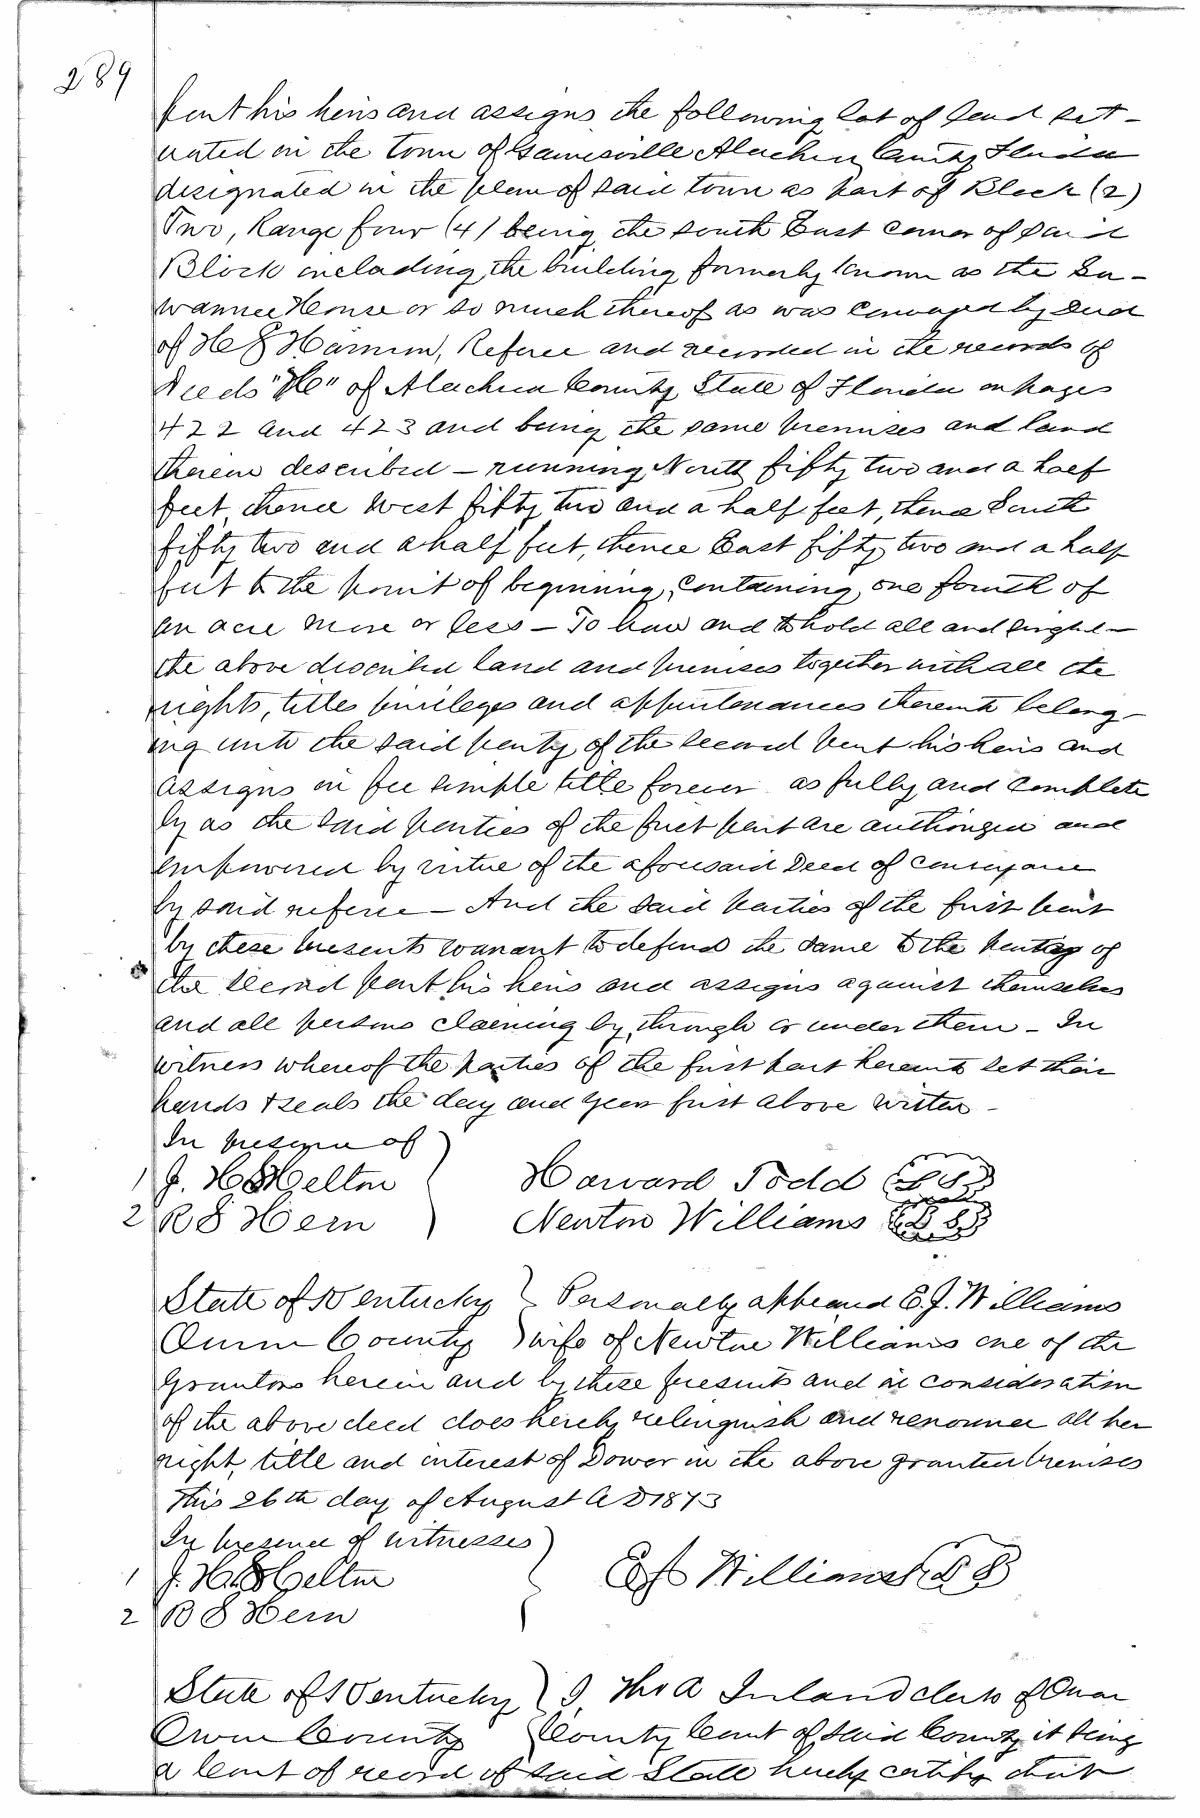 289
part his heirs and assigns the following lot of land sit-
uated in the town of Gainesville Alachua County Florida
designated in the plan of said town as part of Block (2)
Two, Range four (4) being the south East corner of said
Block including the building formerly known as the Su-
wannee House or so much thereof as was conveyed by Deed
of Referee and recorded in the records of
Deeds "H" of Alachua County State of Florida on pages
422 and 423 and being the same premises and land
therein described - running North fifty two and a half
feet, thence West fifty two and a half feet, thence South
fifty two and a half feet, thence East fifty two and a half
feet to the point of beginning, containing one fourth of
an acre more or less - To have and to hold all and singul-
the above described land and premises together with all the
rights, titles privileges and appurtenances thereunto belong-
ing unto the said party of the second part his heirs and
assigns in fee simple title forever as fully and complete
ly as the said parties of the first part are authorized and
empowered by virtue of the aforesaid Deed of conveyance
by said referee - And the said parties of the first part
by these presents warrant to defend the same to the party of
the second part his heirs and assigns against themselves
and all persons claiming by, through or under them - In
witness whereof the parties of the first part hereunto set their
hands & seals the day and year first above written -
In presence of
1 J. H. Shelton Harvard Todd L S
2 R S Hern Newton Williams L S
State of Kentucky } Personally appeared E. J. Williams
Owen County } wife of Newton Williams one of the
Grantors herein and by these presents and in consideration
of the above deed does hereby relinquish and renounce all her
right, title and interest of Dower in the above granted premises
This 26th day of August AD 1873
In presence of witnesses
1 J. H. Shelton E J Williams L S
2 R S Hern
State of Kentucky } I, Tho A clerk of Owen
Owen County } County Court of said County it being
a Court of record of said State hereby certify that